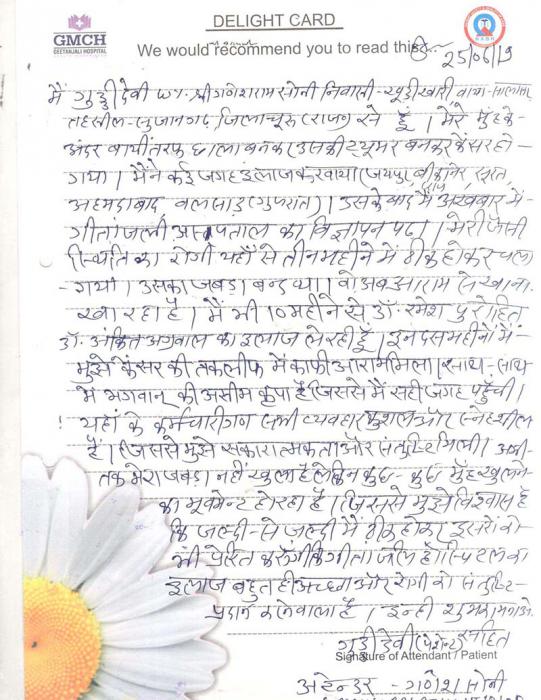 GMCH
GEETANJALI HOSPITAL
DELIGHT CARD
We would recommend you to read this:-
25/06/19
मैं गुड्डीदेवी w/o श्री गणेशराम सोनी निवासी-खुड़ी खारी वाया-सालासर
तहसील-सुजानगढ़, जिला चूरू (राज०) से हूँ। मेरे मुह के-
अंदर बायीं तरफ छाला बनकर उसकी ट्यूमर बनकर कैंसर हो-
गया। मैंने कई जगह इलाज करवाया (जयपुर, बीकानेर, सूरत,
अहमदाबाद, वलसाड़ (गुजरात)। उसके बाद मैं अखबार में-
गीतांजली अस्पताल का विज्ञापन पढ़ा। मेरी जैसी
स्थिति का रोगी यहाँ से तीन महीने में ठीक होकर चला
-गया। उसका जबड़ा बन्द था। वो अब आराम से खाना
खा रहा है। मैं भी 10 महीने से डॉ. रमेश पुरोहित
डॉ. अंकित अग्रवाल का इलाज ले रही हूँ। इन दस महीनों में-
मुझे कैंसर की तकलीफ में काफी आराम मिला। साथ-साथ
में भगवान की असीम कृपा है जिससे मैं सही जगह पहुँची।
यहाँ के कर्मचारीगण सभी व्यवहार कुशल और स्नेहशील
हैं। जिससे मुझे सकारात्मकता और संतुष्टि मिली। अभी-
तक मेरा जबड़ा नहीं खुला है लेकिन कुछ-कुछ मुँह खुलने-
का मूवमेन्ट हो रहा है। जिससे मुझे विश्वास है
कि जल्दी-से जल्दी मैं ठीक होकर दूसरों को
भी प्रेरित करूंगी कि गीतांजली हॉस्पिटल का
इलाज बहुत ही अच्छा और रोगी को संतुष्टि-
प्रदान करने वाला है। इन्हीं शुभकामनाओं
सहित
गुड्डीदेवी (पेशेन्ट)
Signature of Attendant / Patient
अटेन्डर - गणेश सोनी